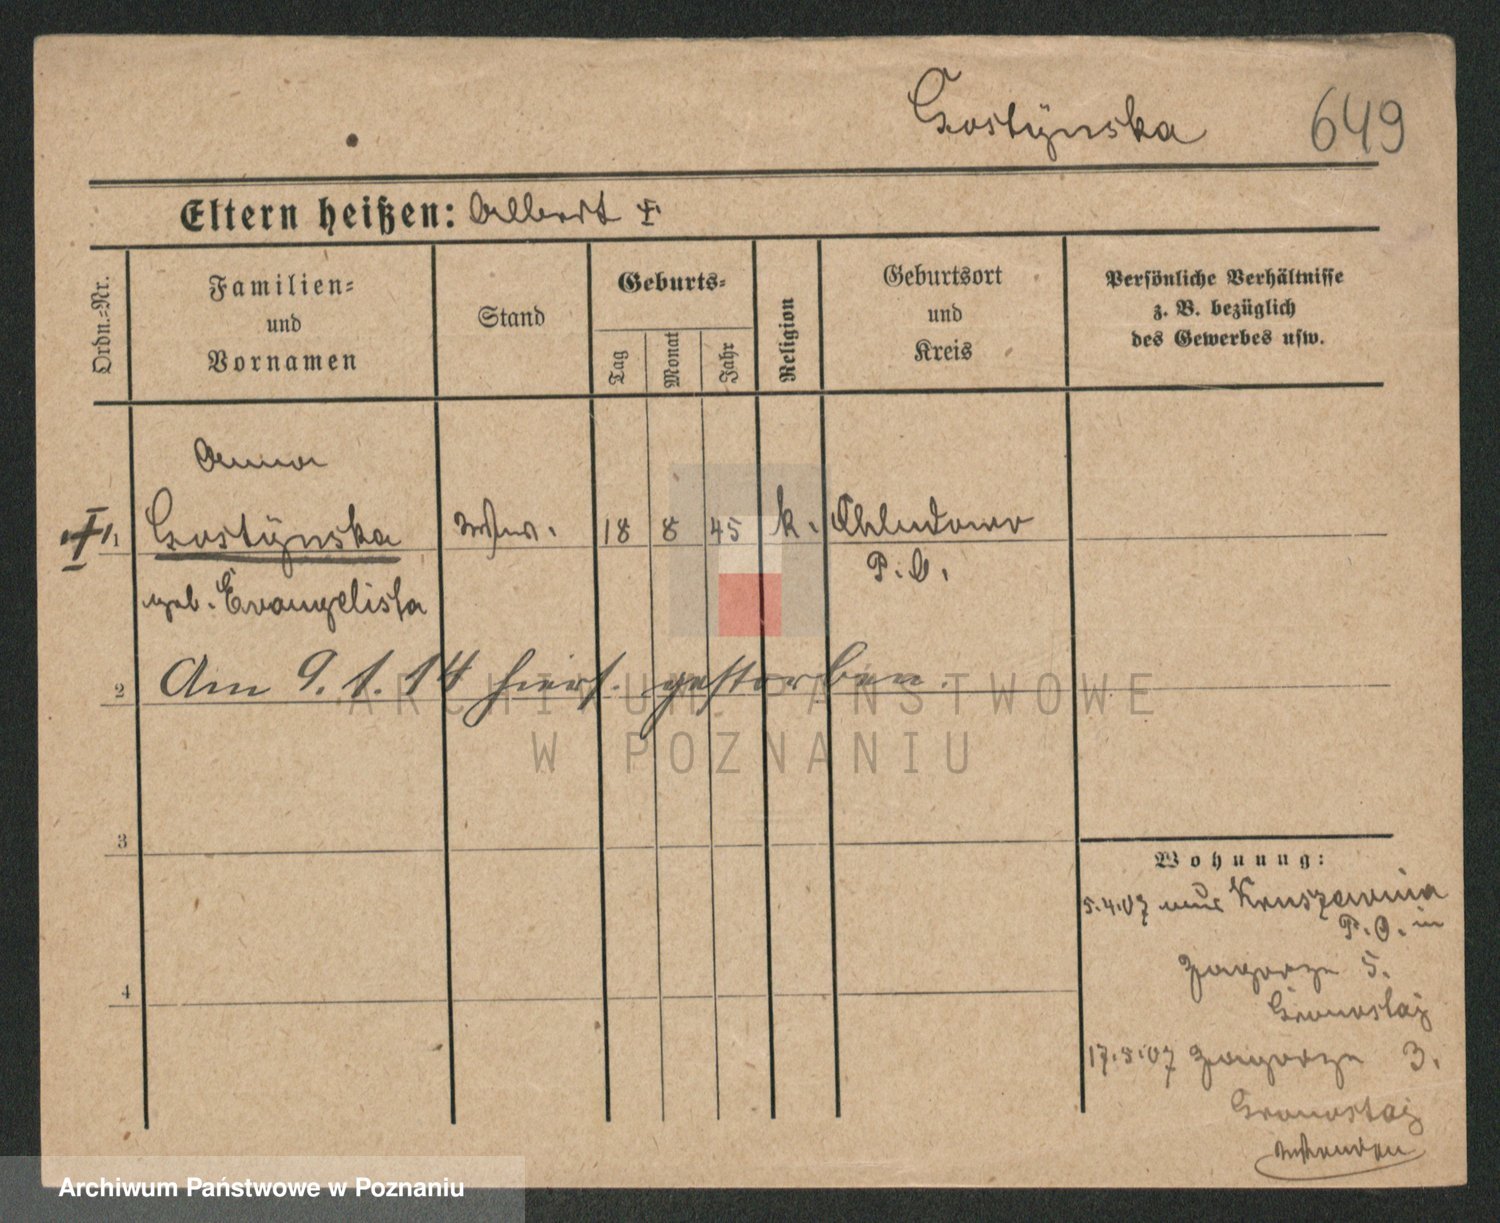 Gostÿnska 649
Eltern heißen: Albert †
Ordn.=Nr.
Familien=
und
Vornamen
Stand
Geburts=
Tag
Monat
Jahr
Religion
Geburtsort
und
Kreis
Persönliche Verhältnisse
z. B. bezüglich
des Gewerbes usw.
Anna
1 Gostÿnska 18 8 45 k. Chludowo
geb. Evangelista P. O.
2 Am 9. 1. 14 hiers. gestorben.
3
4
Wohnung:
5.4.07 aus Kruszewnia
P. O. in
Zagorze 5.
Gronostaj
17.5.07 Zagorze 3.
Gronostaj
ARCHIWUM PAŃSTWOWE
W POZNANIU
Archiwum Państwowe w Poznaniu